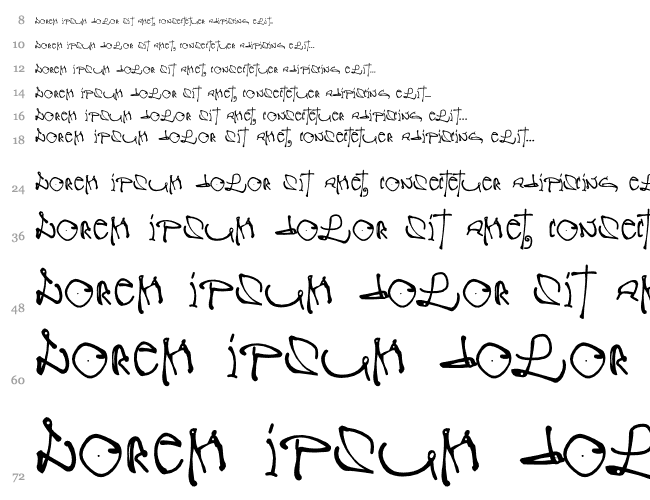 8 Lorem ipsum dolor sit amet, consectetuer adipiscing elit.
10 Lorem ipsum dolor sit amet, consectetuer adipiscing elit...
12 Lorem ipsum dolor sit amet, consectetuer adipiscing elit...
14 Lorem ipsum dolor sit amet, consectetuer adipiscing elit...
16 Lorem ipsum dolor sit amet, consectetuer adipiscing elit...
18 Lorem ipsum dolor sit amet, consectetuer adipiscing elit...
24 Lorem ipsum dolor sit amet, consectetuer adipiscing el
36 Lorem ipsum dolor sit amet, consect
48 Lorem ipsum dolor sit am
60 Lorem ipsum dolor
72 Lorem ipsum dol